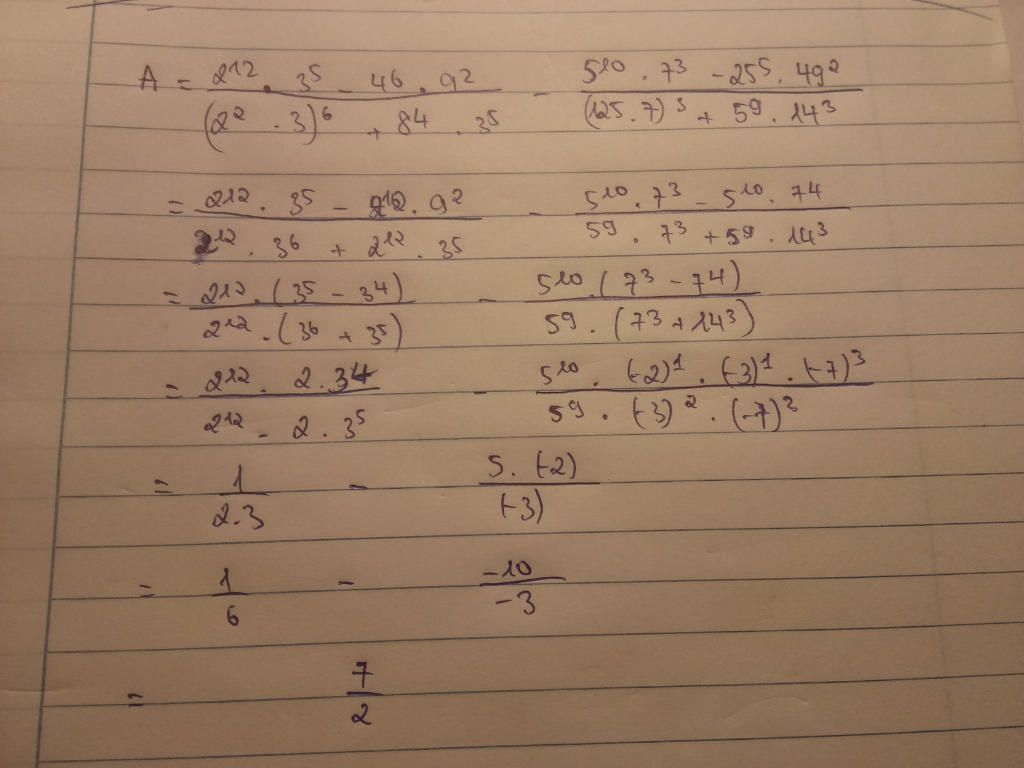 A = \frac{2^{12} \cdot 3^5 - 4^6 \cdot 9^2}{(2^2 \cdot 3)^6 + 8^4 \cdot 3^5} - \frac{5^{10} \cdot 7^3 - 25^5 \cdot 49^2}{(125 \cdot 7)^3 + 5^9 \cdot 14^3}
= \frac{2^{12} \cdot 3^5 - 2^{12} \cdot 9^2}{2^{12} \cdot 3^6 + 2^{12} \cdot 3^5} - \frac{5^{10} \cdot 7^3 - 5^{10} \cdot 7^4}{5^9 \cdot 7^3 + 5^9 \cdot 14^3}
= \frac{2^{12} \cdot (3^5 - 3^4)}{2^{12} \cdot (3^6 + 3^5)} - \frac{5^{10} \cdot (7^3 - 7^4)}{5^9 \cdot (7^3 + 14^3)}
= \frac{2^{12} \cdot 2 \cdot 3^4}{2^{12} - 2 \cdot 3^5} - \frac{5^{10} \cdot (-2)^1 \cdot (-3)^1 \cdot (-7)^3}{5^9 \cdot (-3)^2 \cdot (-7)^3}
= \frac{1}{2 \cdot 3} - \frac{5 \cdot (-2)}{(-3)}
= \frac{1}{6} - \frac{-10}{-3}
= \frac{7}{2}